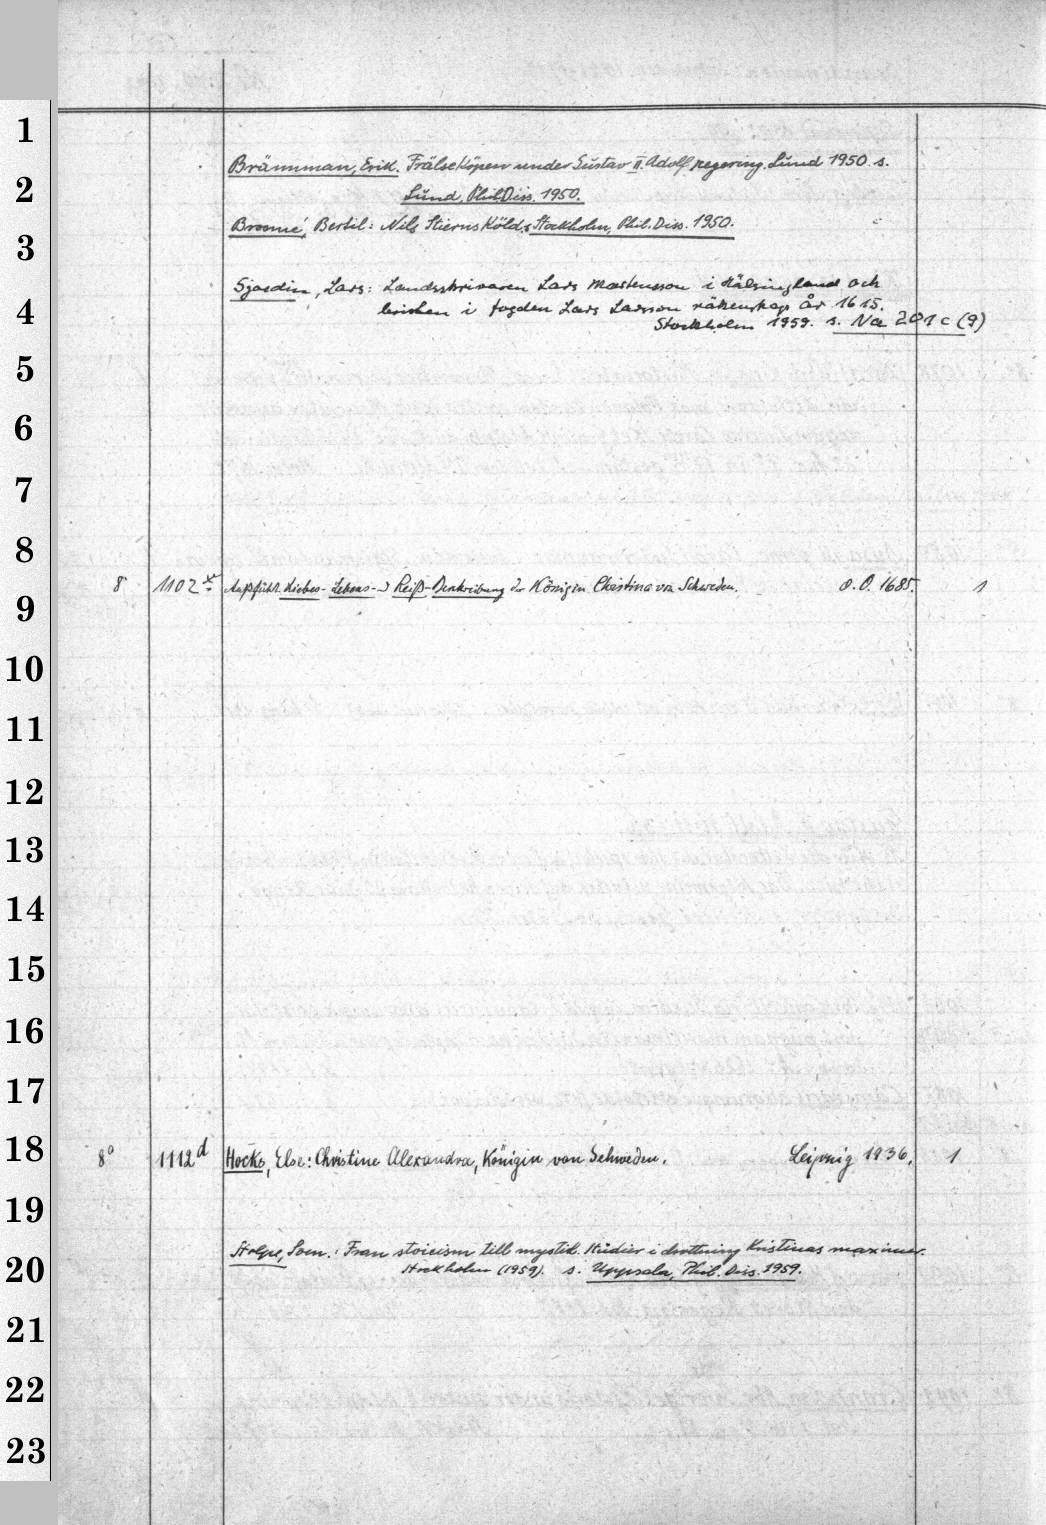 1
2
3
4
5
6
7
8
9
10
11
12
13
14
15
16
17
18
19
20
21
22
23
Brännman, Erik. Frälseköpen under Gustav II. Adolfs regering. Lund 1950 s.
Lund, Phil. Diss. 1950.
Broomé, Bertil: Nils Stiernsköld. s. Stockholm, Phil. Diss. 1950.
Sjoedin, Lars: Landsskrivaren Lars Mortensson i Hälsingland och
brishen i fogden Lars Larsson räkenskap år 1615.
Stockholm 1959. s. Na 201 c (9)
8 1102 x Außführl. Liebes- Lebens- u Reiß-Beschreibung der Königin Christina von Schweden. o. O. 1685. 1
8° 1112 d Hocks, Else: Christine Alexandra, Königin von Schweden. Leipzig 1936. 1
Stolpe, Sven.: Fran stoicism till mystik. Studier i drottning Kristinas maximer.
Stockholm (1959). s. Uppsala, Phil. Diss. 1959.